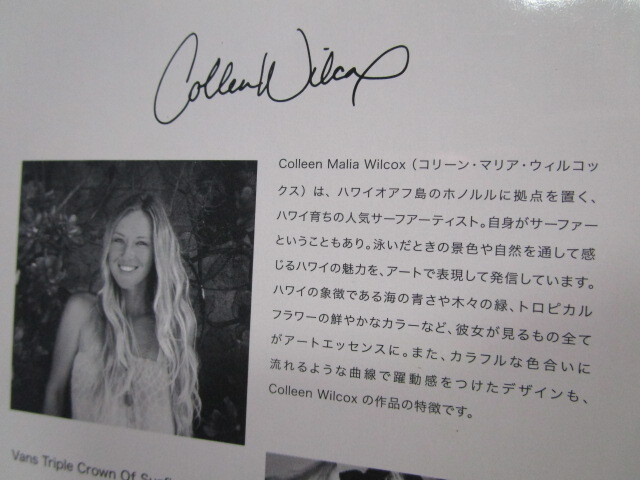 Colleen Wilcox
Colleen Malia Wilcox（コリーン・マリア・ウィルコッ
クス）は、ハワイオアフ島のホノルルに拠点を置く、
ハワイ育ちの人気サーフアーティスト。自身がサーファー
ということもあり。泳いだときの景色や自然を通して感
じるハワイの魅力を、アートで表現して発信しています。
ハワイの象徴である海の青さや木々の緑、トロピカル
フラワーの鮮やかなカラーなど、彼女が見るもの全て
がアートエッセンスに。また、カラフルな色合いに
流れるような曲線で躍動感をつけたデザインも、
Colleen Wilcox の作品の特徴です。
Vans Triple Crown Of